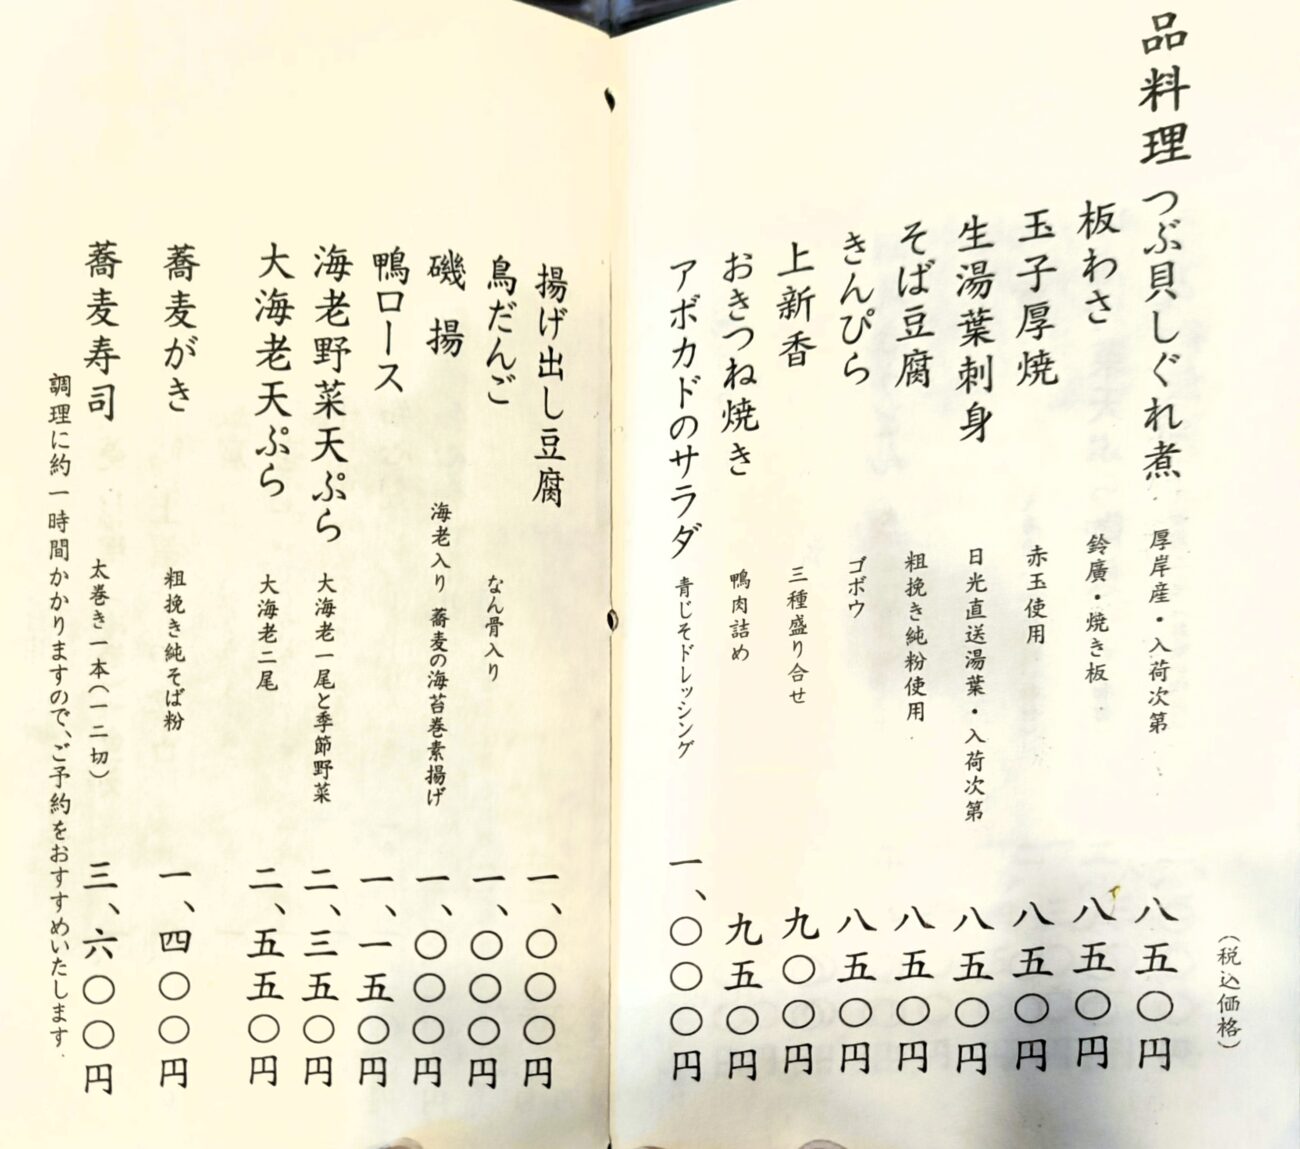 品料理
（税込価格）
つぶ貝しぐれ煮 厚岸産・入荷次第 八五〇円
板わさ 鈴廣・焼き板 八五〇円
玉子厚焼 赤玉使用 八五〇円
生湯葉刺身 日光直送湯葉・入荷次第 八五〇円
そば豆腐 粗挽き純粉使用 八五〇円
きんぴら ゴボウ 八五〇円
上新香 三種盛り合せ 九〇〇円
おきつね焼き 鴨肉詰め 九五〇円
アボカドのサラダ 青じそドレッシング 一、〇〇〇円
揚げ出し豆腐 一、〇〇〇円
鳥だんご なん骨入り 一、〇〇〇円
磯揚 海老入り 蕎麦の海苔巻素揚げ 一、〇〇〇円
鴨ロース 一、一五〇円
海老野菜天ぷら 大海老一尾と季節野菜 二、三五〇円
大海老天ぷら 大海老二尾 二、五五〇円
蕎麦がき 粗挽き純そば粉 一、四〇〇円
蕎麦寿司 太巻き一本（一二切） 三、六〇〇円
調理に約一時間かかりますので、ご予約をおすすめいたします.